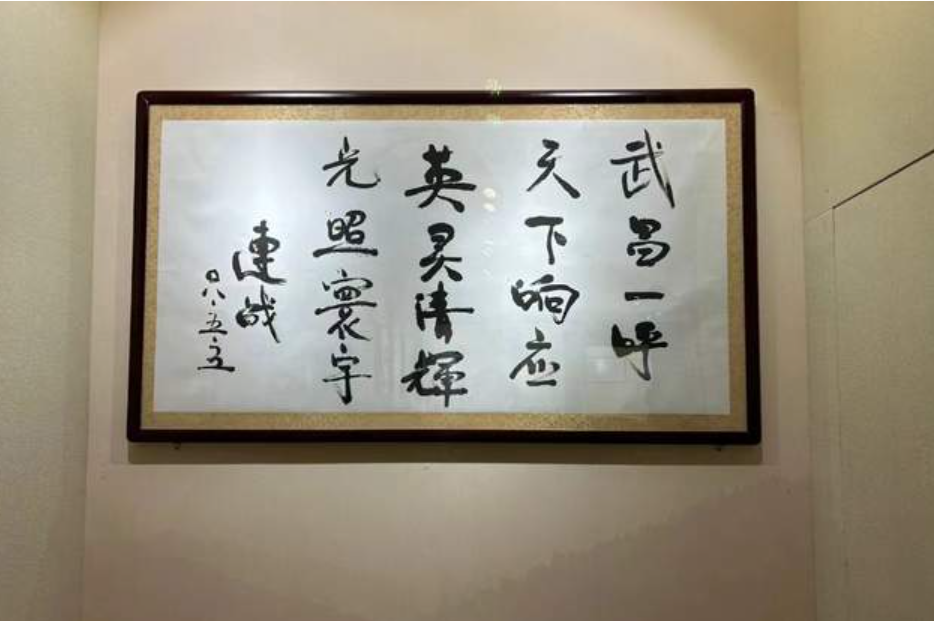 武昌一呼
天下响应
英灵清輝
光照寰宇
連战
〇八·五·五